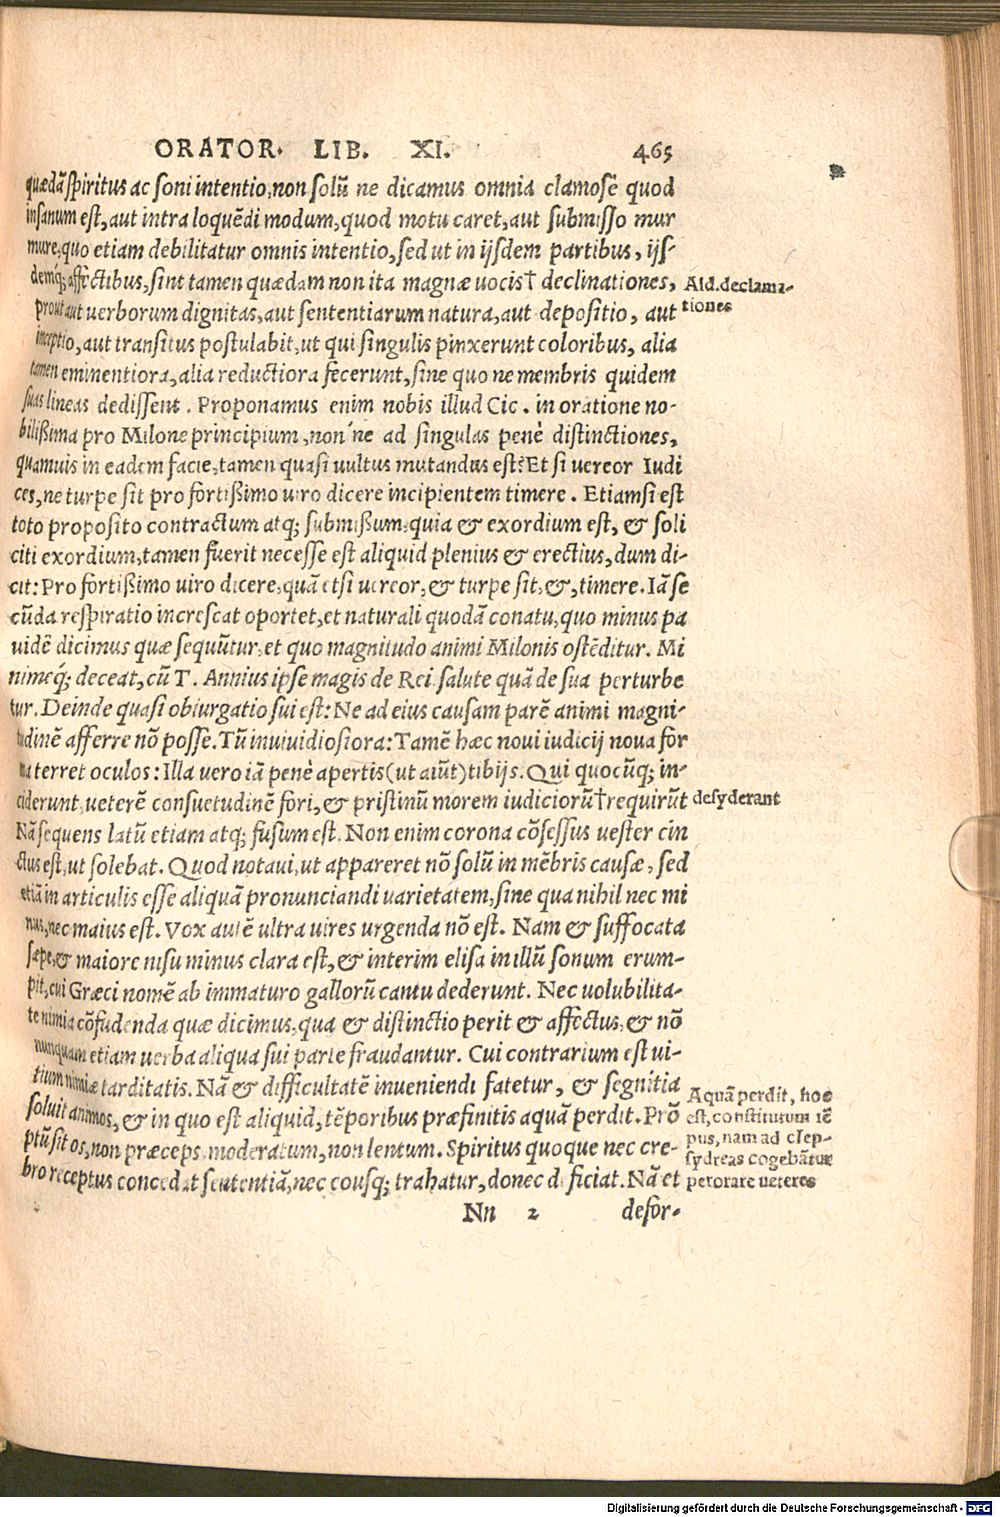 ORATOR. LIB. XI. 465
quædã spiritus ac soni intentio, non solũ ne dicamus omnia clamosè quod
insanum est, aut intra loquẽdi modum, quod motu caret, aut submisso mur
mure, quo etiam debilitatur omnis intentio, sed ut in ijsdem partibus, ijs-
demq́; affectibus, sint tamen quædam non ita magnæ uocis† declinationes,
Ald. declama-
tiones
prout aut uerborum dignitas, aut sententiarum natura, aut depositio, aut
inceptio, aut transitus postulabit, ut qui singulis pinxerunt coloribus, alia
tamen eminentiora, alia reductiora fecerunt, sine quo ne membris quidem
suas lineas dedissent. Proponamus enim nobis illud Cic. in oratione no-
bilißima pro Milone principium, non'ne ad singulas penè distinctiones,
quamuis in eadem facie, tamen quasi uultus mutandus est? Et si uereor Iudi
ces, ne turpe sit pro fortißimo uiro dicere incipientem timere. Etiamsi est
toto proposito contractum atq; submißum, quia & exordium est, & soli
citi exordium, tamen fuerit necesse est aliquid plenius & erectius, dum di-
cit: Pro fortißimo uiro dicere, quã etsi uereor, & turpe sit, &, timere. Iã se
cũda respiratio increscat oportet, et naturali quodã conatu, quo minus pa
uidẽ dicimus quæ sequũtur, et quo magnitudo animi Milonis ostẽditur. Mi
nimeq́; deceat, cũ T. Annius ipse magis de Rei salute quã de sua perturbe
tur. Deinde quasi obiurgatio sui est: Ne ad eius causam parẽ animi magni-
tudinẽ afferre nõ posse. Tũ inuiuidiosiora: Tamẽ hæc noui iudicij noua for
ma terret oculos: Illa uero iã penè apertis (ut aiũt) tibijs. Qui quocũq; in-
ciderunt, ueterẽ consuetudinẽ fori, & pristinũ morem iudiciorũ† requirũt
desyderant
Nã sequens latũ etiam atq; fusum est. Non enim corona cõsessus uester cin
ctus est, ut solebat. Quod notaui, ut appareret nõ solũ in mẽbris causæ, sed
etiã in articulis esse aliquã pronunciandi uarietatem, sine qua nihil nec mi
nus, nec maius est. Vox autẽ ultra uires urgenda nõ est. Nam & suffocata
sæpe, & maiore nisu minus clara est, & interim elisa in illũ sonum erum-
pit, cui Græci nomẽ ab immaturo gallorũ cantu dederunt. Nec uolubilita-
te nimia cõfudenda quæ dicimus, qua & distinctio perit & affectus, & nõ
nunquam etiam uerba aliqua sui parte fraudantur. Cui contrarium est ui-
tium nimiæ tarditatis. Nã & difficultatẽ inueniendi fatetur, & segnitia
soluit animos, & in quo est aliquid, tẽporibus præfinitis aquã perdit. Prõ
ptũ sit os, non præceps, moderatum, non lentum. Spiritus quoque nec cre-
bro receptus concedat sententiã, nec eousq; trahatur, donec deficiat. Nã et
Aquã perdit, hoc
est, constitutum tẽ
pus, nam ad clep-
sydreas cogebãtur
perorare ueteres
Nn 2 defor-
Digitalisierung gefördert durch die Deutsche Forschungsgemeinschaft - DFG